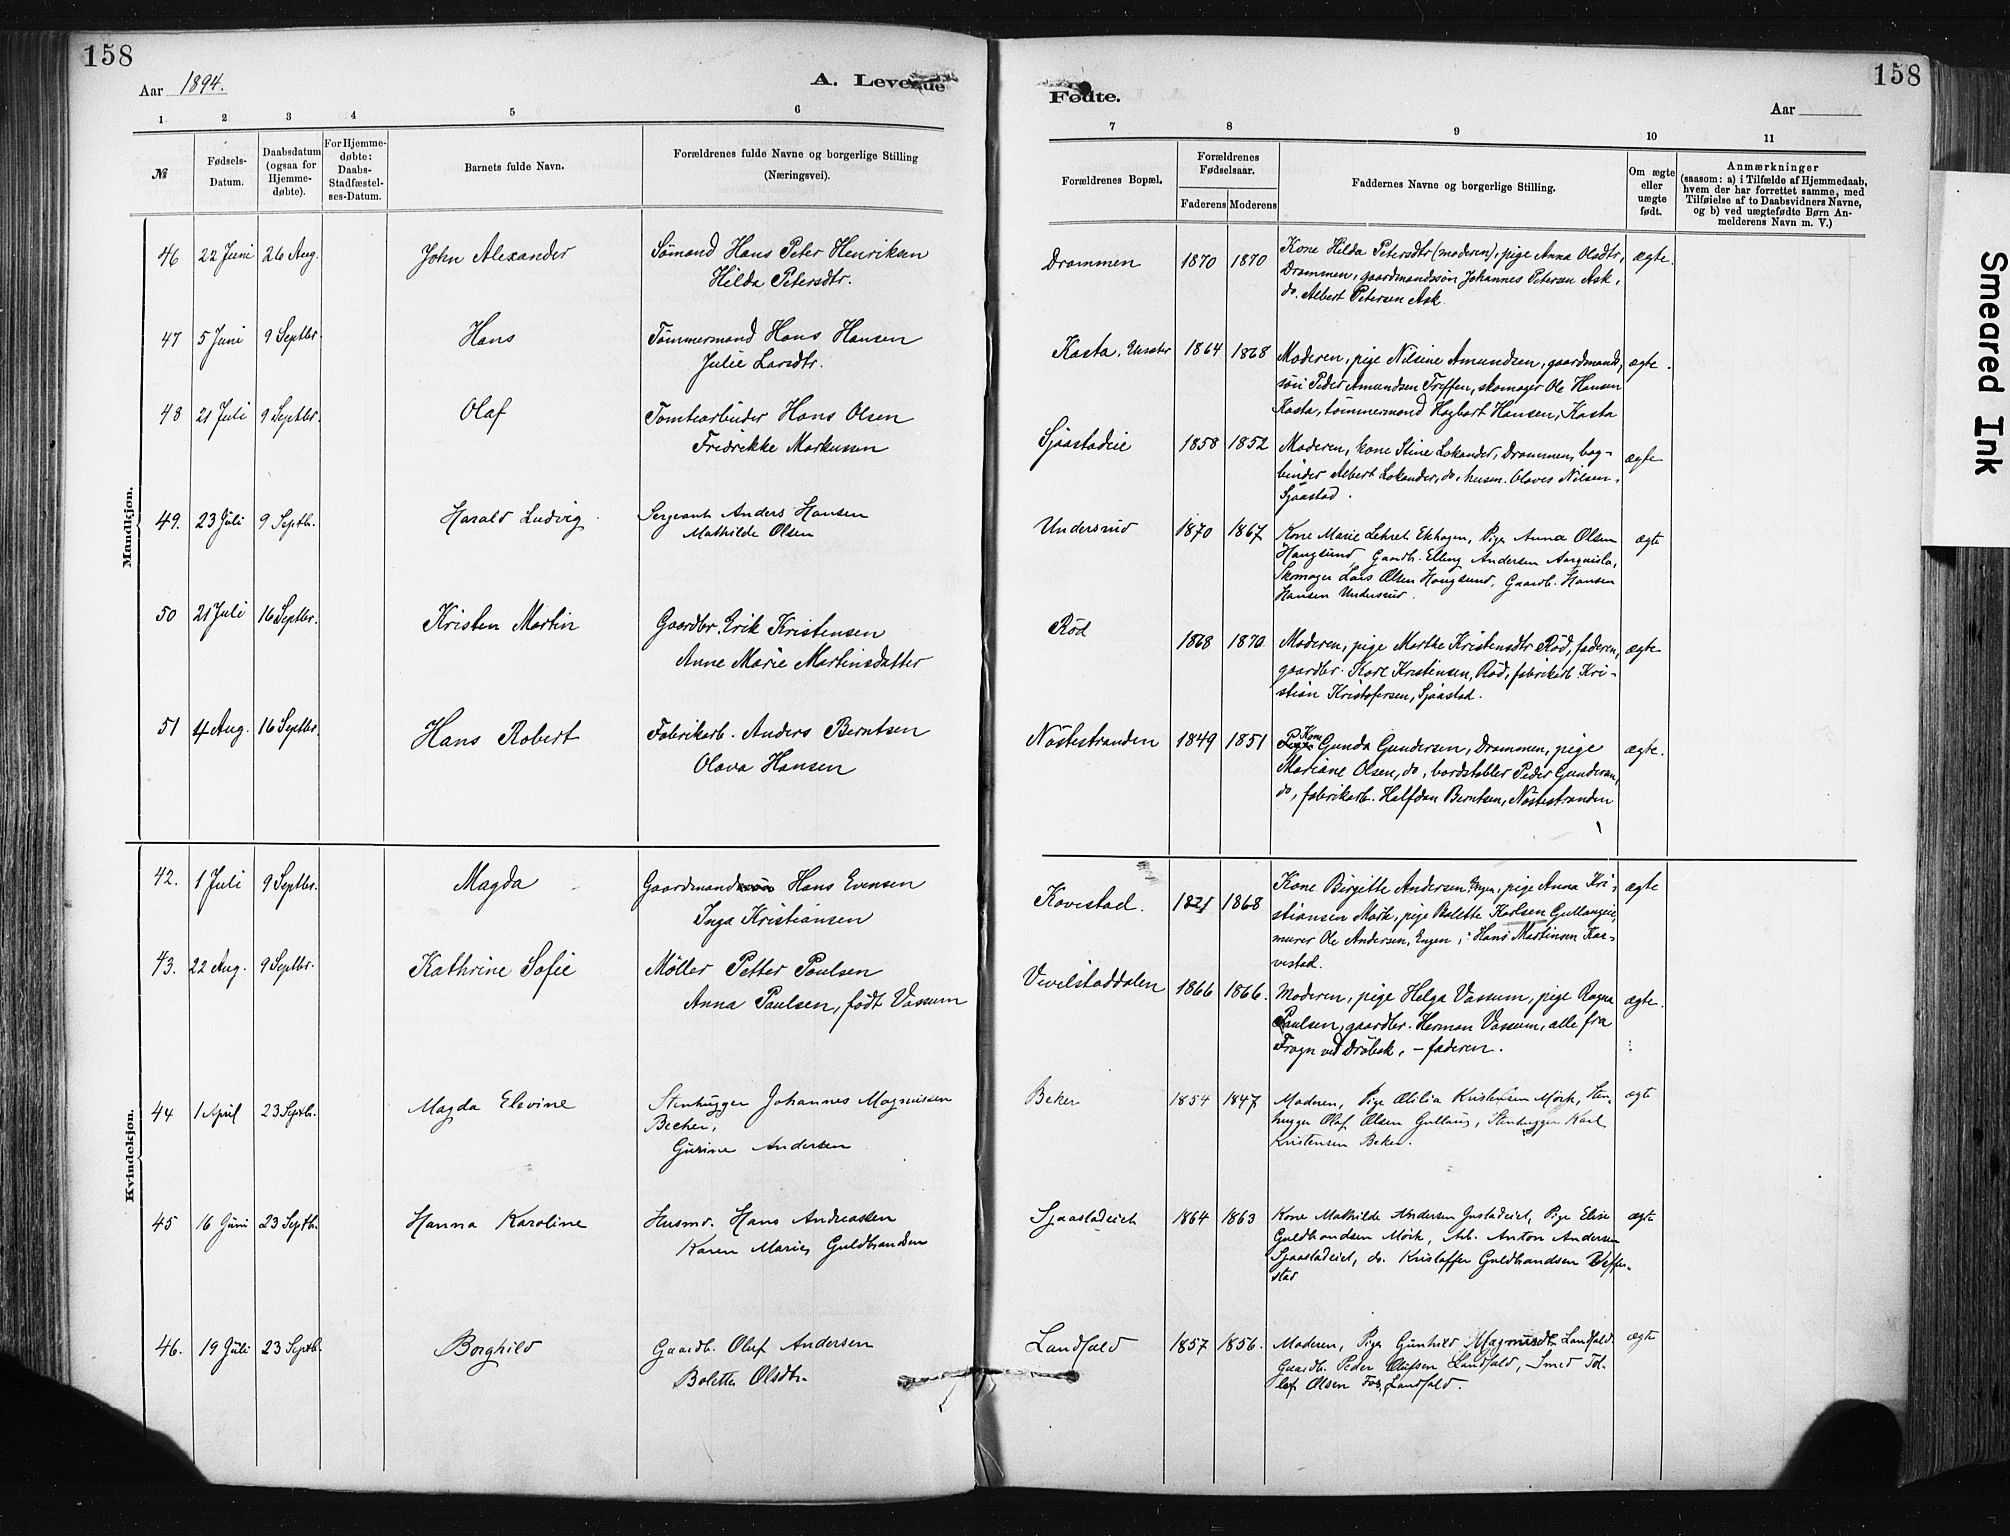 158
Aar 1894.
A. Levende
1 2 3 4 5 6
№
Fødsels-Datum.
Daabsdatum (ogsaa for Hjemme-døbte).
For Hjemme-døbte: Daabs-Stadfæstel-ses-Datum.
Barnets fulde Navn.
Forældrenes fulde Navne og borgerlige Stilling
(Næringsvei).
Mandkjøn.
46 22 Juni 26 Aug. John Alexander Sømand Hans Peter Henriksen
Hilda Petersdtr.
47 5 Juni 9 Septbr. Hans Tømmermand Hans Hansen
Julie Larsdtr.
48 21 Juli 9 Septbr. Olaf Tomtearbeider Hans Olsen
Fredrikke Markussen
49. 23 Juli 9 Septb. Harald Ludvig Sergeant Anders Hansen
Mathilde Olsen
50 21 Juli 16 Septbr. Kristen Martin Gaardbr. Erik Kristensen
Anne Marie Martinsdatter
51 4 Aug. 16 Septbr. Hans Robert Fabrikarb. Anders Berntsen
Olava Hansen
Kvindekjøn.
42. 1 Juli 9 Septbr. Magda Gaardmandssøn Hans Evensen
Inga Kristiansen
43. 22 Aug. 9 Septbr. Kathrine Sofie Møller Petter Paulsen
Anna Paulsen, født Vassum
44 1 April 23 Septb. Magda Elevine Stenhugger Johannes Magnussen
Becher,
Gurine Andersen
45 16 Juni 23 Septb. Hanna Karoline Husmd. Hans Andreassen
Karen Marie Guldbrandsen
46. 19 Juli 23 Septb. Borghild Gaardb. Oluf Andersen
Bolette Olsdtr.
158
Fødte.
Aar
7 8 9 10 11
Forældrenes Bopæl.
Forældrenes Fødselsaar.
Faderens Moderens
Faddernes Navne og borgerlige Stilling.
Om ægte eller uægte født.
Anmærkninger
(saasom: a) i Tilfælde af Hjemmedaab,
hvem der har forrettet samme, med
Tilføielse af to Daabsvidners Navne,
og b) ved uægtefødte Børn An-
melderens Navn m. V.)
Drammen 1870 1870 Kone Hilda Petersdtr (moderen), pige Anna Olsdtr, ægte.
Drammen, gaardmandssøn Johannes Petersen Ask,
do. Albert Petersen Ask.
Kasta, 1864 1868 Moderen, pige Nilsine Amundsen, gaardmands- ægte.
søn Peder Amundsen Treffen, skomager Ole Hansen
Kasta, tømmermand Hagbart Hansen, Kasta
Sjaastadeie 1858 1852 Moderen, kone Stine Lokander, Drammen, bog- ægte
binder Albert Lokander, do., husm. Olaves Nilsen,
Sjaastad.
Undersrud 1870 1867 Kone Marie Ekhagen, Pige Anna Olsen ægte
Haugsund, Gaardb. Elling Andersen
Skomager Lars Olsen Haugsund, Gaardb. Hansen
Hansen Undersrud.
Rød 1868 1870 Moderen, pige Marthe Kristensdtr Rød, faderen, ægte
gaardbr. Karl Kristensen, Rød, fabrikarb. Kri-
stian Kristofersen, Sjaastad.
Nøstestranden 1849 1851 Pige Kone Gunda Gundersen, Drammen, pige ægte.
Mariane Olsen, do, bordstabler Peder Gundersen,
do, fabrikarb. Halfdan Berntsen, Nøstestranden
Kovestad. 1868 Kone Birgitte Andersen Engen, pige Anna Kri- ægte
stiansen Mørk, pige Bolette Karlsen Gullaugeie,
murer Ole Andersen, Engen, Hans Martinsen Kor-
vestad.
Vivelstaddalen 1866 1866. Moderen, pige Helga Vassum, pige Ragna ægte.
Paulsen, gaardbr. Herman Vassum, alle fra
Frogn ved Drøbak, – faderen.
Beker 1854 1847 Moderen, Pige Otilia Kristensen Mørk, Sten- ægte
hugger Olaf Olsen Gullaug, Stenhugger Karl
Kristensen Beker.
Sjaastadeiet 1864 1863 Kone Mathilde Andersen Pige Elise ægte
Guldbrandsen Mørk, Arb. Anton Andersen
Sjaastadeiet, do. Kristoffer Guldbrandsen Veffer-
stad
Landfald 1857 1856. Moderen, Pige Gunhild Magnusdtr Landfald. ægte
Gaardb. Peder Olufsen Landfald, Smed
Olsen Landfald.
Smeared Ink